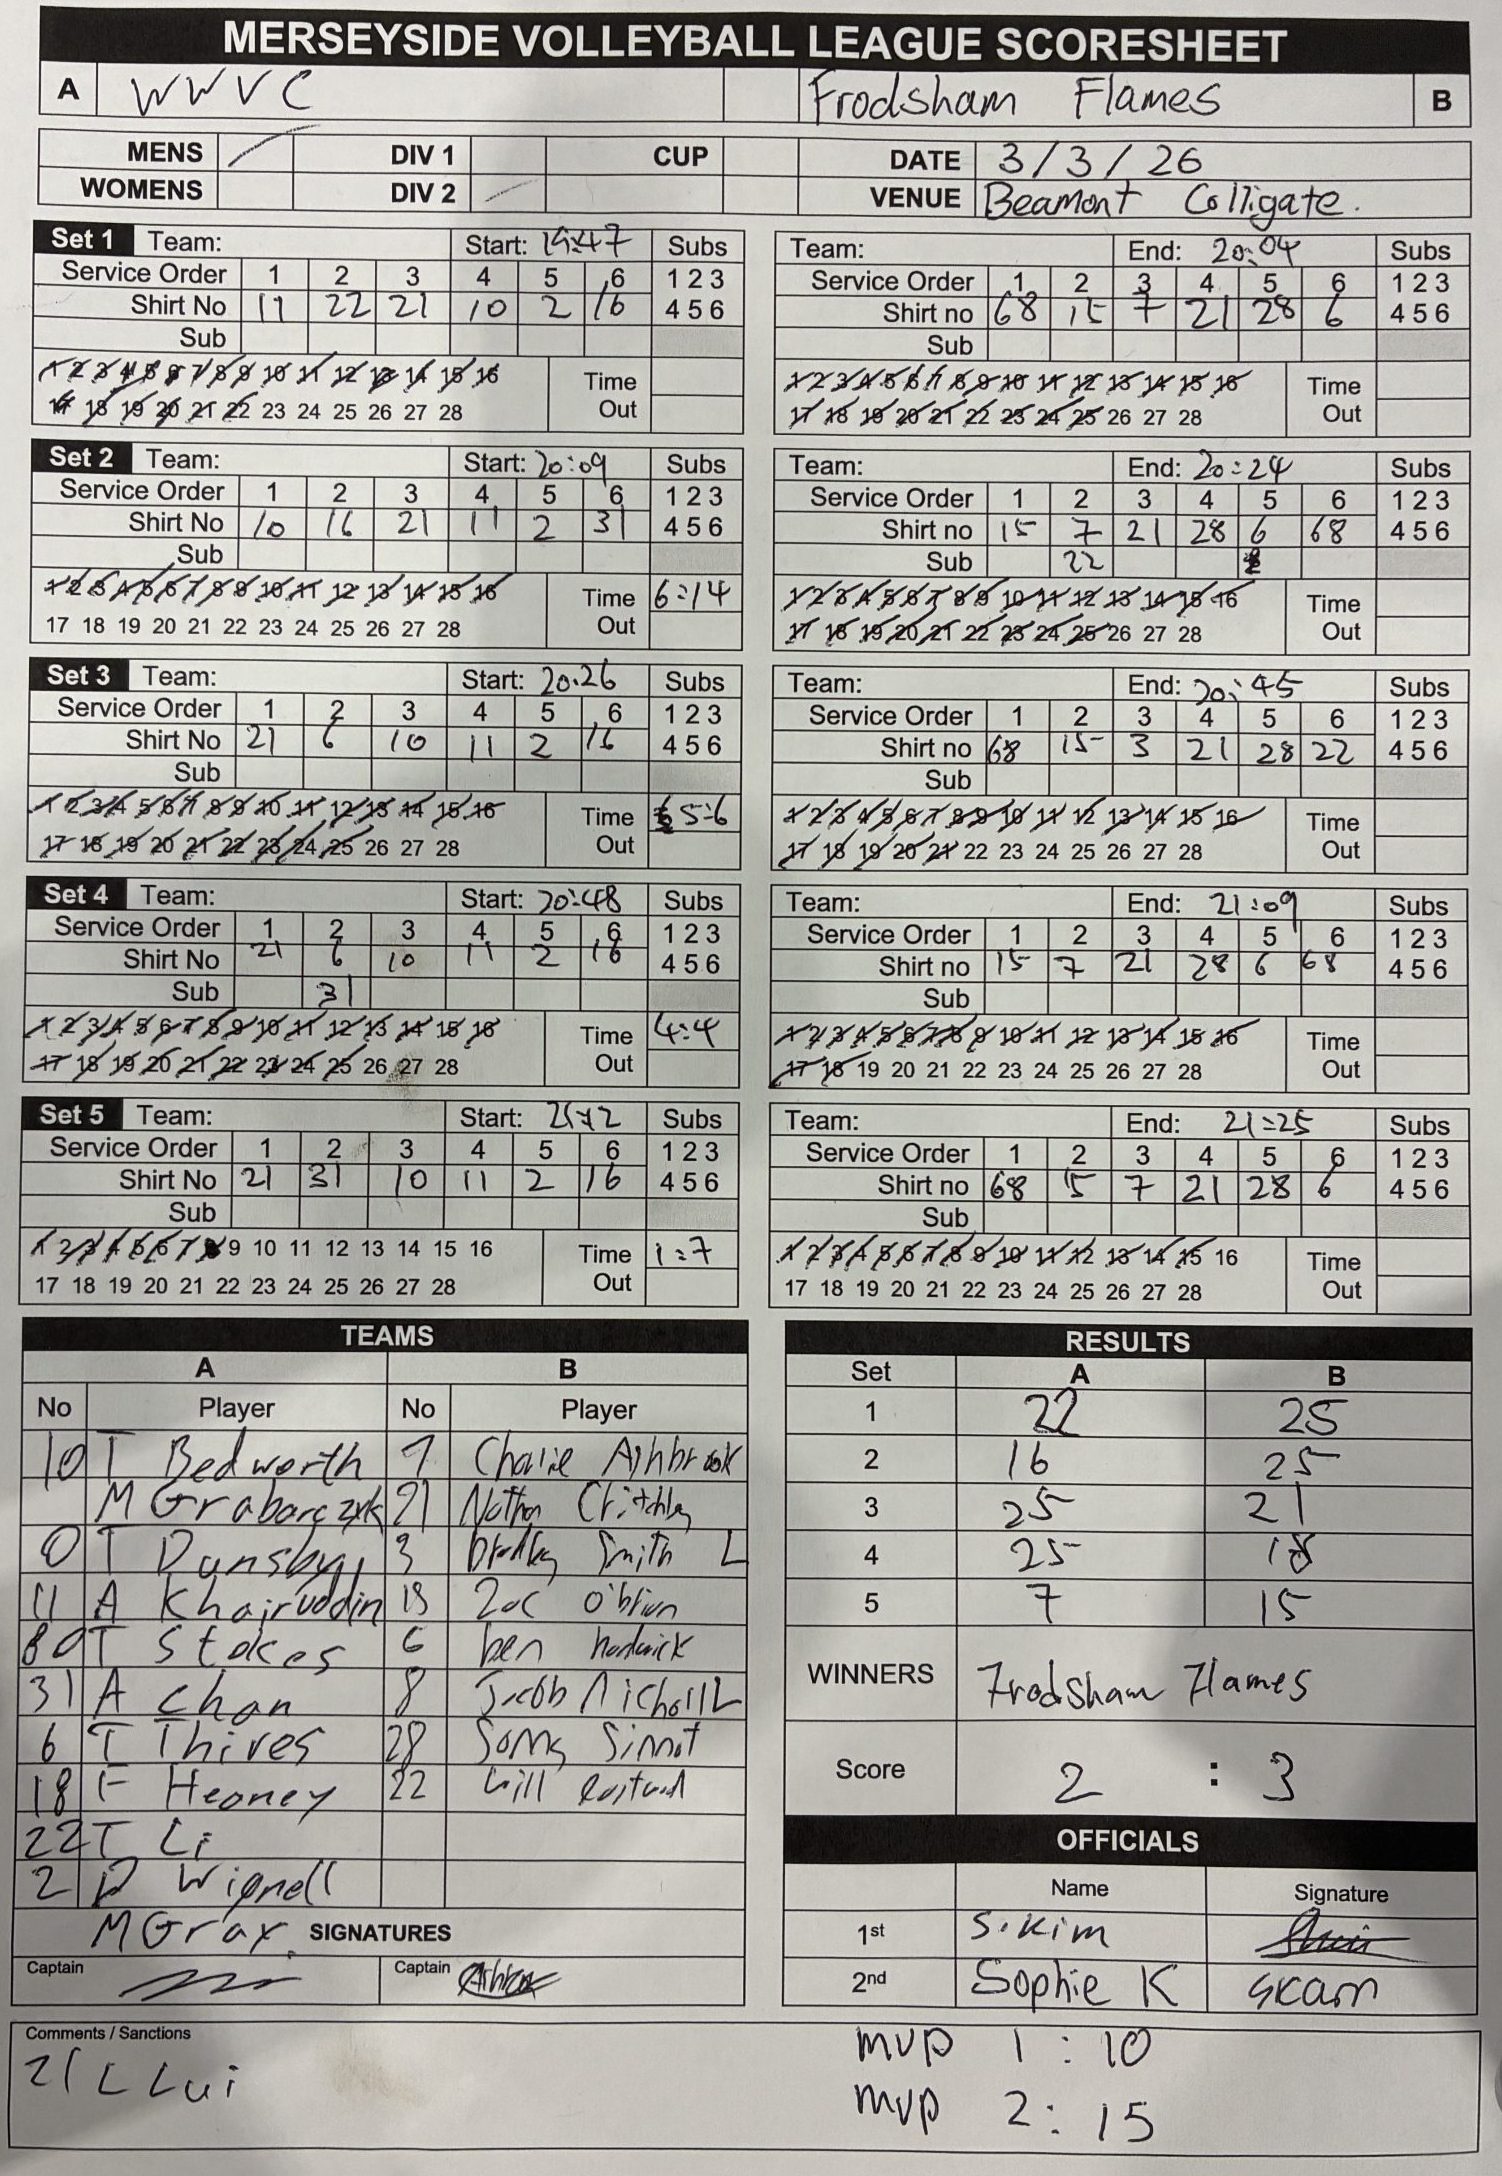 MERSEYSIDE VOLLEYBALL LEAGUE SCORESHEET
A WWVC Frodsham Flames B
MENS / DIV 1 CUP DATE 3/3/26
WOMENS DIV 2 / VENUE Beamont Colligate.
Set 1 Team: Start: 19:47 Subs Team: End: 20:04 Subs
Service Order 1 2 3 4 5 6 1 2 3 Service Order 1 2 3 4 5 6 1 2 3
Shirt No 11 22 21 10 2 16 4 5 6 Shirt no 68 15 7 21 28 6 4 5 6
Sub Sub
1 2 3 4 5 6 7 8 9 10 11 12 13 14 15 16 Time 1 2 3 4 5 6 7 8 9 10 11 12 13 14 15 16 Time
17 18 19 20 21 22 23 24 25 26 27 28 Out 17 18 19 20 21 22 23 24 25 26 27 28 Out
Set 2 Team: Start: 20:09 Subs Team: End: 20:24 Subs
Service Order 1 2 3 4 5 6 1 2 3 Service Order 1 2 3 4 5 6 1 2 3
Shirt No 10 16 21 11 2 31 4 5 6 Shirt no 15 7 21 28 6 68 4 5 6
Sub Sub 22
1 2 3 4 5 6 7 8 9 10 11 12 13 14 15 16 Time 6:14 1 2 3 4 5 6 7 8 9 10 11 12 13 14 15 16 Time
17 18 19 20 21 22 23 24 25 26 27 28 Out 17 18 19 20 21 22 23 24 25 26 27 28 Out
Set 3 Team: Start: 20:26 Subs Team: End: 20:45 Subs
Service Order 1 2 3 4 5 6 1 2 3 Service Order 1 2 3 4 5 6 1 2 3
Shirt No 21 6 10 11 2 16 4 5 6 Shirt no 68 15 3 21 28 22 4 5 6
Sub Sub
1 2 3 4 5 6 7 8 9 10 11 12 13 14 15 16 Time 5:6 1 2 3 4 5 6 7 8 9 10 11 12 13 14 15 16 Time
17 18 19 20 21 22 23 24 25 26 27 28 Out 17 18 19 20 21 22 23 24 25 26 27 28 Out
Set 4 Team: Start: 20:48 Subs Team: End: 21:09 Subs
Service Order 1 2 3 4 5 6 1 2 3 Service Order 1 2 3 4 5 6 1 2 3
Shirt No 21 6 10 11 2 16 4 5 6 Shirt no 15 7 21 28 6 68 4 5 6
Sub 31 Sub
1 2 3 4 5 6 7 8 9 10 11 12 13 14 15 16 Time 4:4 1 2 3 4 5 6 7 8 9 10 11 12 13 14 15 16 Time
17 18 19 20 21 22 23 24 25 26 27 28 Out 17 18 19 20 21 22 23 24 25 26 27 28 Out
Set 5 Team: Start: Subs Team: End: 21:25 Subs
Service Order 1 2 3 4 5 6 1 2 3 Service Order 1 2 3 4 5 6 1 2 3
Shirt No 21 31 10 11 2 16 4 5 6 Shirt no 68 15 7 21 28 6 4 5 6
Sub Sub
1 2 3 4 5 6 7 8 9 10 11 12 13 14 15 16 Time 1:7 1 2 3 4 5 6 7 8 9 10 11 12 13 14 15 16 Time
17 18 19 20 21 22 23 24 25 26 27 28 Out 17 18 19 20 21 22 23 24 25 26 27 28 Out
TEAMS
A B
No Player No Player
10 T Bedworth 7 Charlie Ashbrook
M Grabarczyk 21 Nathan Critchley
0 T Dunsby 3 bradley Smith L
11 A Khairuddin 15 Zac O'brien
80 T Stokes 6 ben
31 A Chan 8 Jacob Nicholl L
6 T Thires 28 Sinnot
18 F Heaney 22 will
22 T Li
2 D Wignell
M Gray SIGNATURES
Captain Captain
RESULTS
Set A B
1 22 25
2 16 25
3 25 21
4 25 18
5 7 15
WINNERS Frodsham Flames
Score 2 : 3
OFFICIALS
Name Signature
1st S.Kim
2nd Sophie K skam
Comments / Sanctions
21 L Lui
mvp 1 : 10
mvp 2 : 15